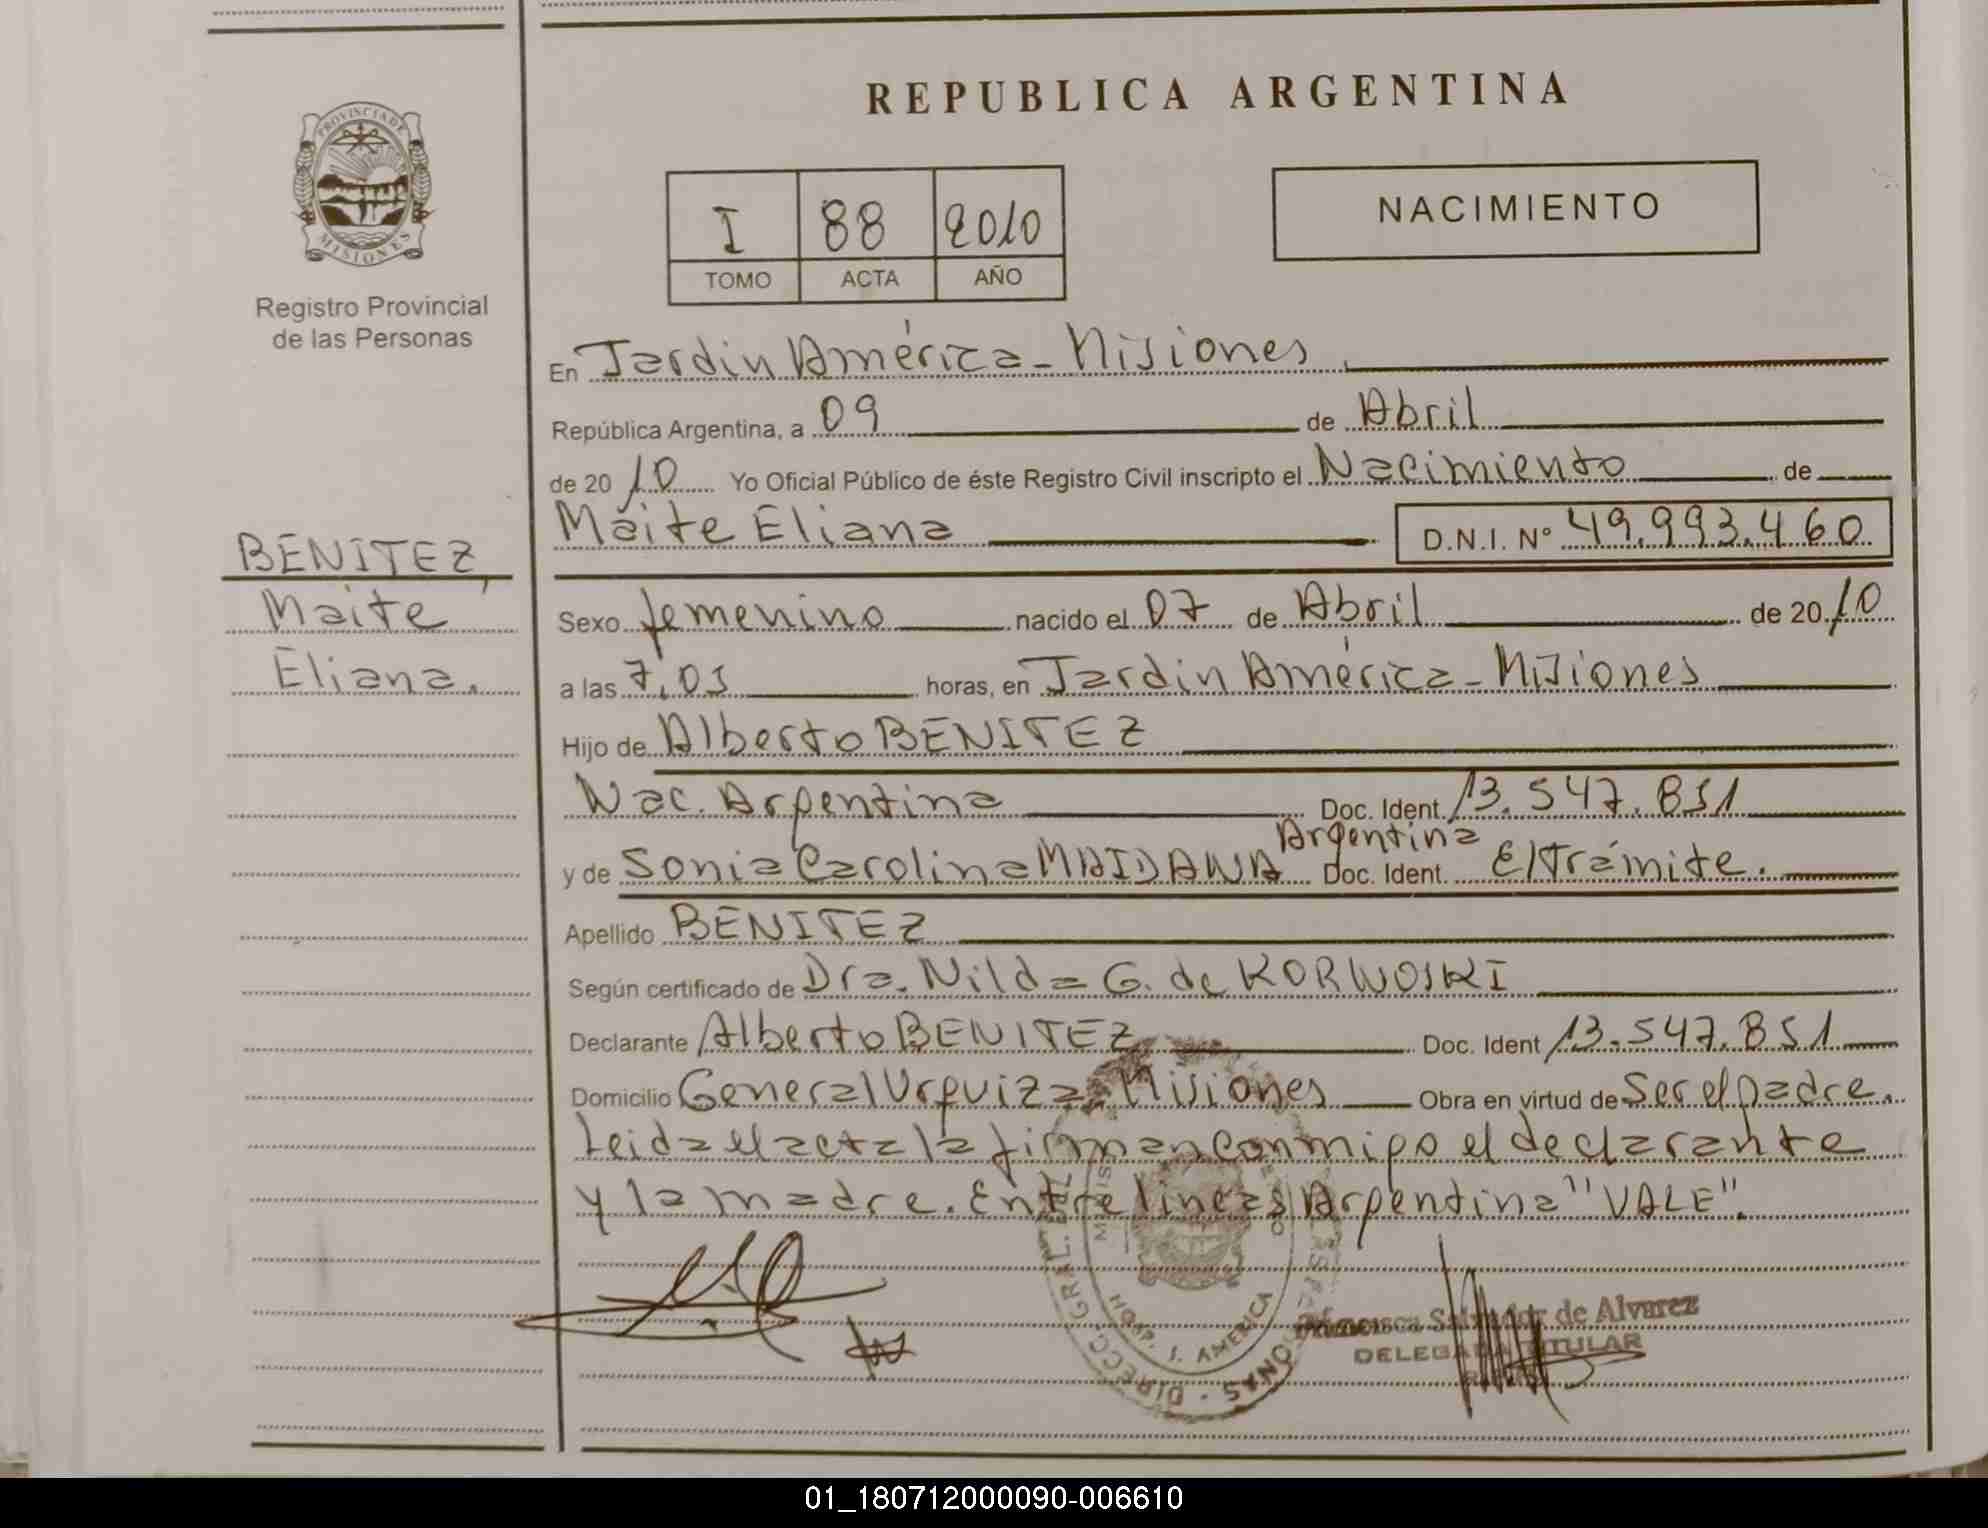 REPUBLICA ARGENTINA
PROVINCIA DE
MISIONES
Registro Provincial
de las Personas
I 88 2010
TOMO ACTA AÑO
NACIMIENTO
En Jardin América - Misiones
República Argentina, a 09 de Abril
de 2010 Yo Oficial Público de éste Registro Civil inscripto el Nacimiento de
Maite Eliana D.N.I. Nº 49.993.460
BENITEZ,
Maite
Eliana.
Sexo femenino nacido el 07 de Abril de 2010
a las 7,05 horas, en Jardin América - Misiones
Hijo de Alberto BENITEZ
Nac. Argentina Doc. Ident. 13.547.851
Argentina
y de Sonia Carolina MAIDANA Doc. Ident. E/Trámite.
Apellido BENITEZ
Según certificado de Dra. Nilda G. de KORWOSKI
Declarante Alberto BENITEZ Doc. Ident 13.547.851
Domicilio General Urquiza - Misiones Obra en virtud de Ser el padre.
Leida el acta la firman conmigo el declarante
y la madre. Entre lineas Argentina "VALE".
DIRECC. GRAL.
HOSP. J. AMERICA
Francisca Salvador de Alvarez
DELEGADA TITULAR
01_180712000090-006610